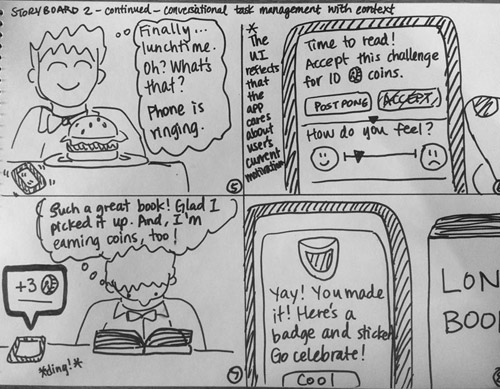 STORYBOARD 2 - continued - conversational task management with context
Finally...
lunchtime.
Oh? What's
that?
Phone is
ringing.
5
*
The
UI
reflects
that
the
app
cares
about
user's
current
motivation
Time to read!
Accept this challenge
for 10 coins.
POSTPONE ACCEPT
How do you feel?
Such a great book! Glad I
picked it up. And, I'm
earning coins, too!
+3
*ding!*
7
Yay! You made
it! Here's a
badge and sticker
Go celebrate!
Cool
LON
BOO